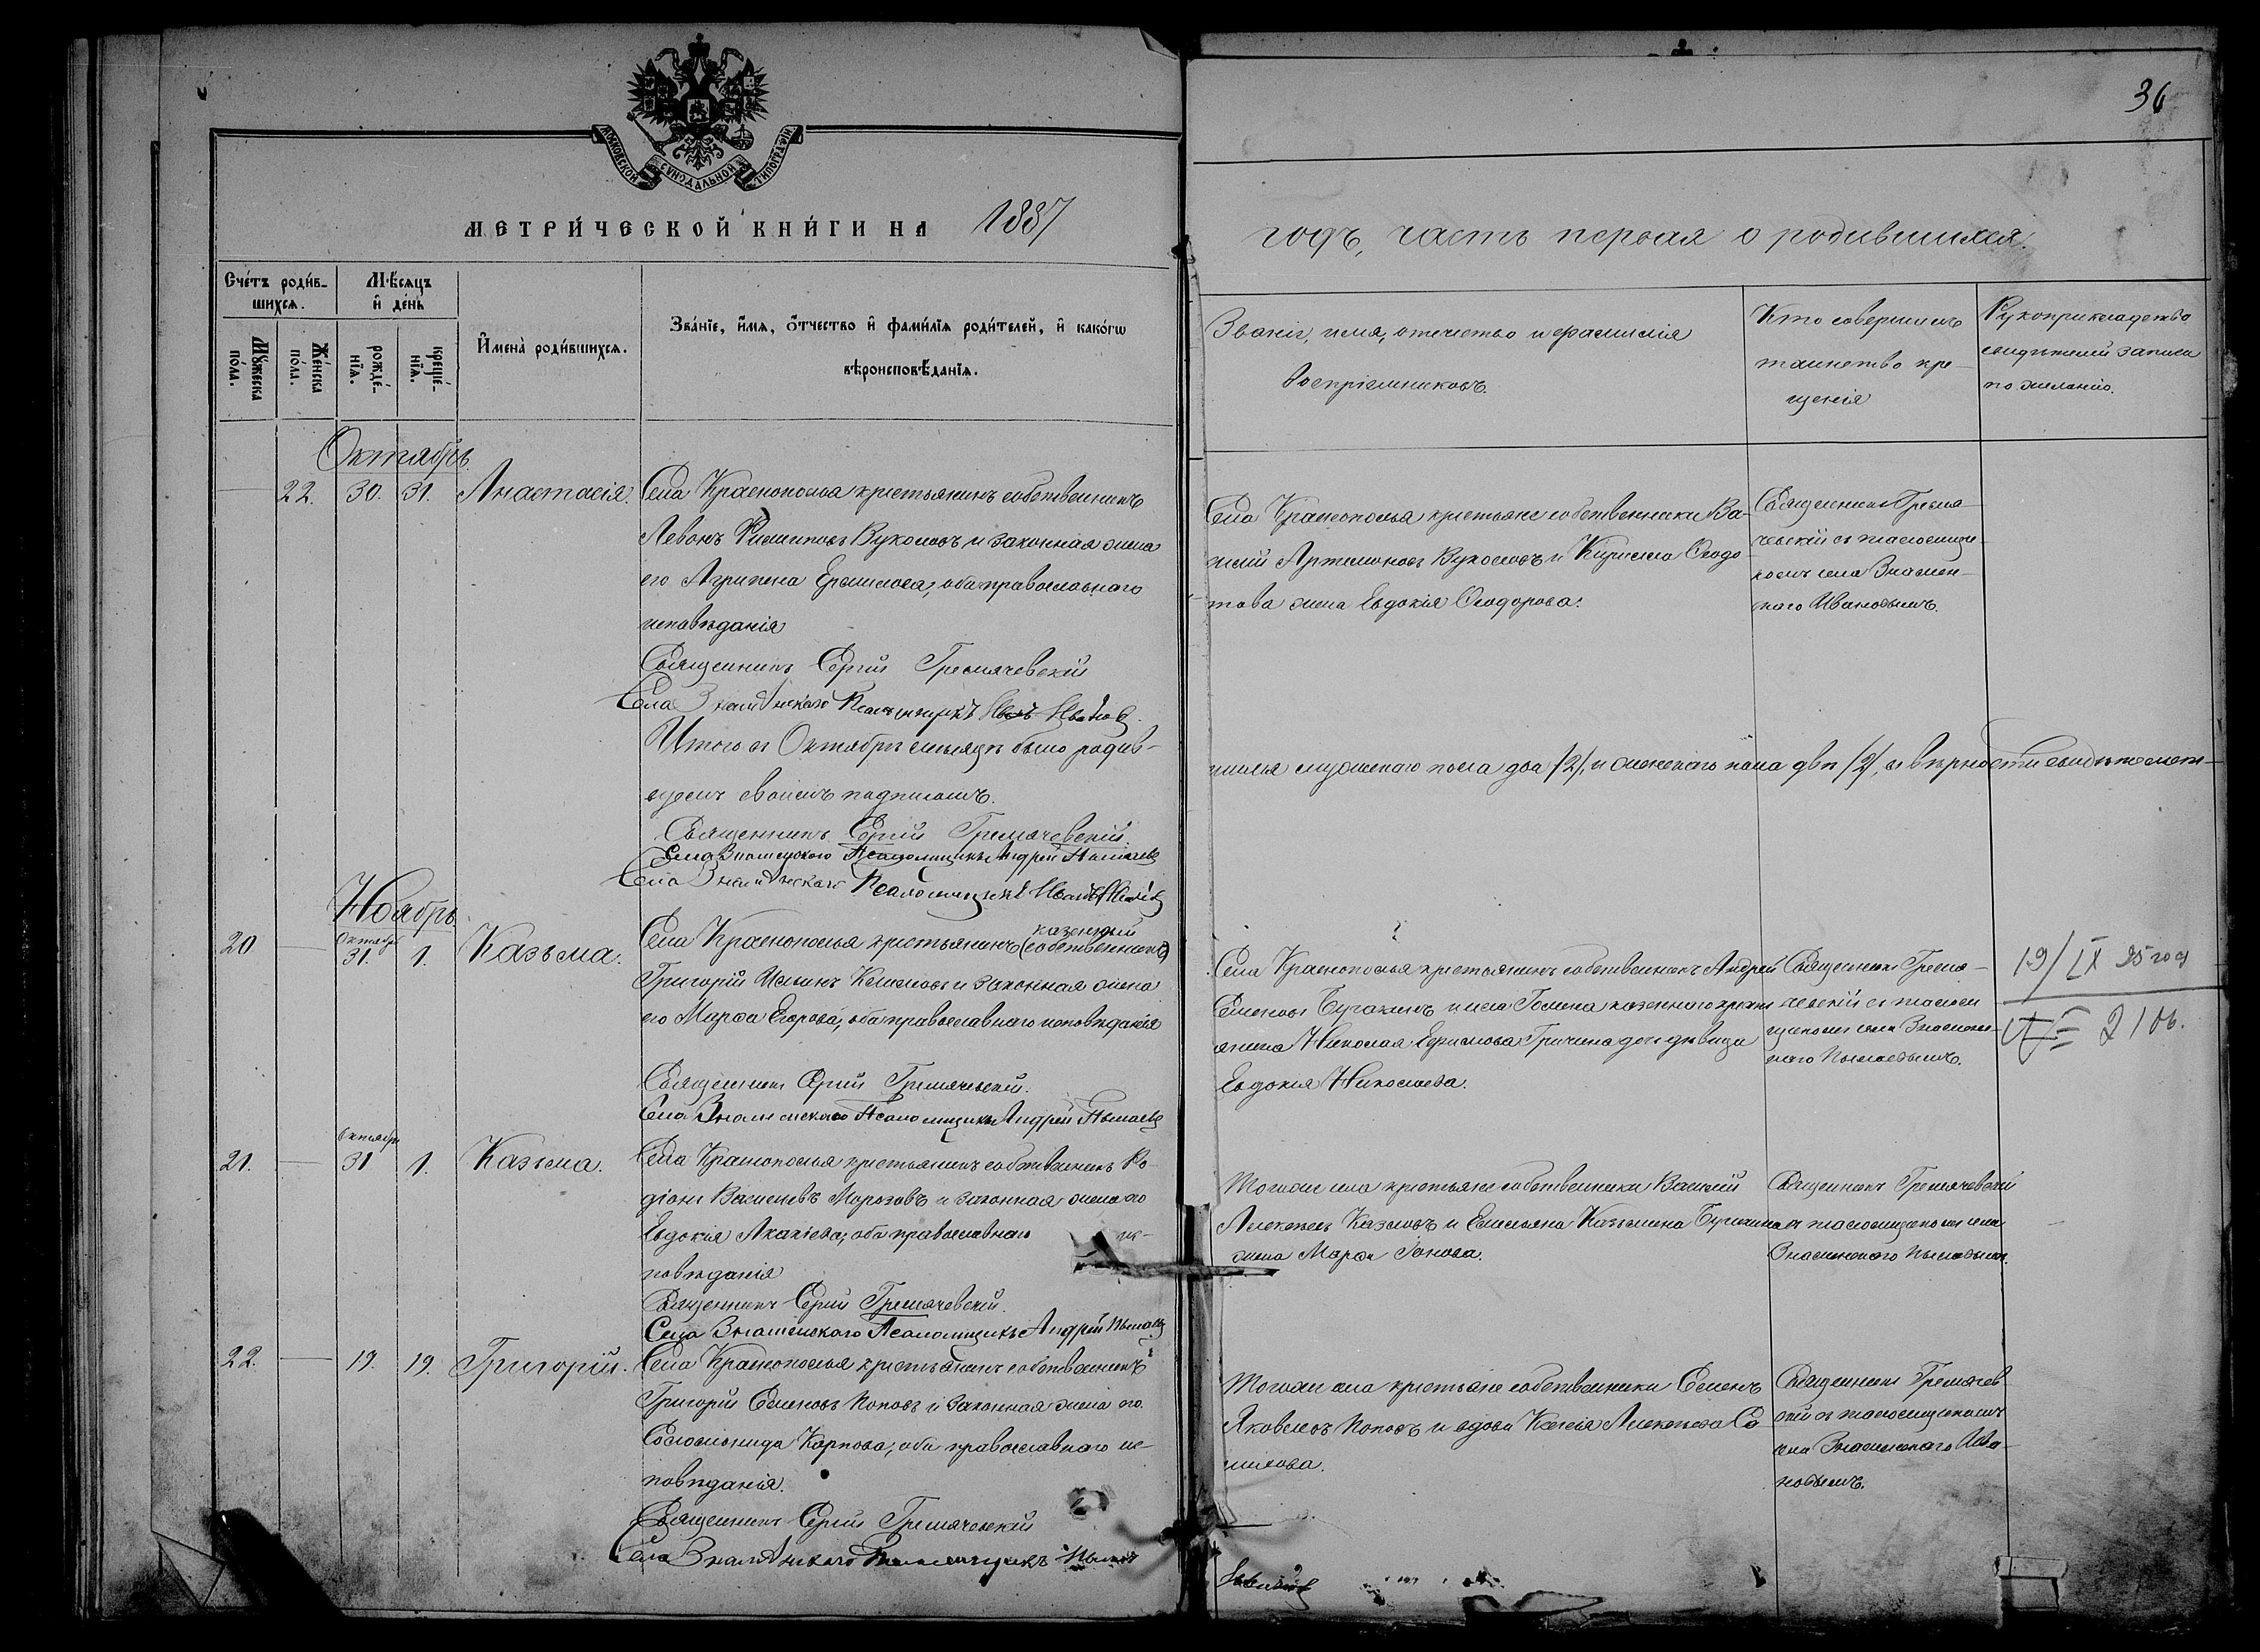 36
МОСКОВСКОЙ СѴНОДАЛЬНОЙ ТИПОГРАФІИ
МЕТРИ́ЧЕСКОЙ КНИ́ГИ НА 1887
годъ, часть первая о родившихся.
Сче́тъ роди́в-
шихсѧ.
Мꙋ́жеска по́ла.
Же́нска по́ла.
Мѣ́сѧцъ
и҆ де́нь
рожде́-
нїѧ.
креще́-
нїѧ.
И҆мена̀ роди́вшихсѧ.
Зва́нїе, и҆́мѧ, ѻ҆́тчество и҆ фами́лїѧ роди́телей, и҆ како́гѡ
вѣроисповѣ́данїѧ.
Званіе, имя, отчество и фамилія
воспріемниковъ.
Кто совершилъ
таинство кре-
щенія
Рукоприкладство
свидѣтелей записи
по желанію.
Октябрь.
22. 30. 31. Анастасія.
Села Краснополья крестьянинъ собственникъ
Левонъ Филиповъ Вуколовъ и законная жена
его Агрипена Ермилова, оба православнаго
исповѣданія
Священникъ Сергій Гремячевскій
Села Знаменскаго Псаломщикъ Иванъ Ивановъ.
Села Краснополья крестьяне собственники Ва-
силій Артемоновъ Вуколовъ и Кирилла Ѳедо
това жена Евдокія Ѳеодорова.
Священникъ Гремя-
чевскій съ псаломщи-
комъ села Знамен-
скаго Ивановымъ.
Итого въ Октябрѣ мѣсяцѣ было родив-
шихся мужескаго пола два /2/, и женскаго пола двѣ /2/, въ вѣрности свидѣтельст-
вуемъ своимъ подписомъ.
Священникъ Сергій Гремячевскій.
Села Знаменскаго Псаломщикъ Андрей
Села Знаменскаго Псаломщикъ Иванъ Ивановъ
Ноябрь.
20. Октября 31. 1. Казьма.
казенный
Села Краснополья крестьянинъ (собственникъ)
Григорій Ильинъ и законная жена
его Марѳа Егорова, оба православнаго исповѣданія
Священникъ Сергій Гремячевскій.
Села Знаменскаго Псаломщикъ Андрей
Села Краснополья крестьянинъ собственникъ Андрей
Семеновъ Бугакинъ и села казеннаго крест
янина Николая Ефимова Гричина дочь дѣвица
Евдокія Николаева.
Священникъ Гремя-
чевскій съ псалом
щикомъ села Знамен-
скаго
19/IX 25 год
2106.
21. Октября 31 1. Казьма.
Села Краснополья крестьянинъ собственникъ Ро-
діонъ Васильевъ Морозовъ и законная жена его
Евдокія Акакіева, оба православнаго ис-
повѣданія
Священникъ Сергій Гремячевскій.
Села Знаменскаго Псаломщикъ Андрей
Тогоже села крестьяне собственники Василій
Алексѣевъ Казловъ и Емельяна Казьмина Бугакина
жена Марѳа
Священникъ Гремячевскій
съ псаломщикомъ села
Знаменскаго
22. 19. 19. Григорій.
Села Краснополья крестьянинъ собственникъ
Григорій Семеновъ Поповъ и законная жена его
Соломонида Карпова, оба православнаго ис-
повѣданія.
Священникъ Сергій Гремячевскій
Села Знаменскаго Псаломщикъ
Тогоже села крестьяне собственники Семенъ
Яковлевъ Поповъ и вдова Ксенія Алексѣева Са
Священникъ Гремячев
скій съ псаломщикомъ
села Знаменскаго Ива-
новымъ.